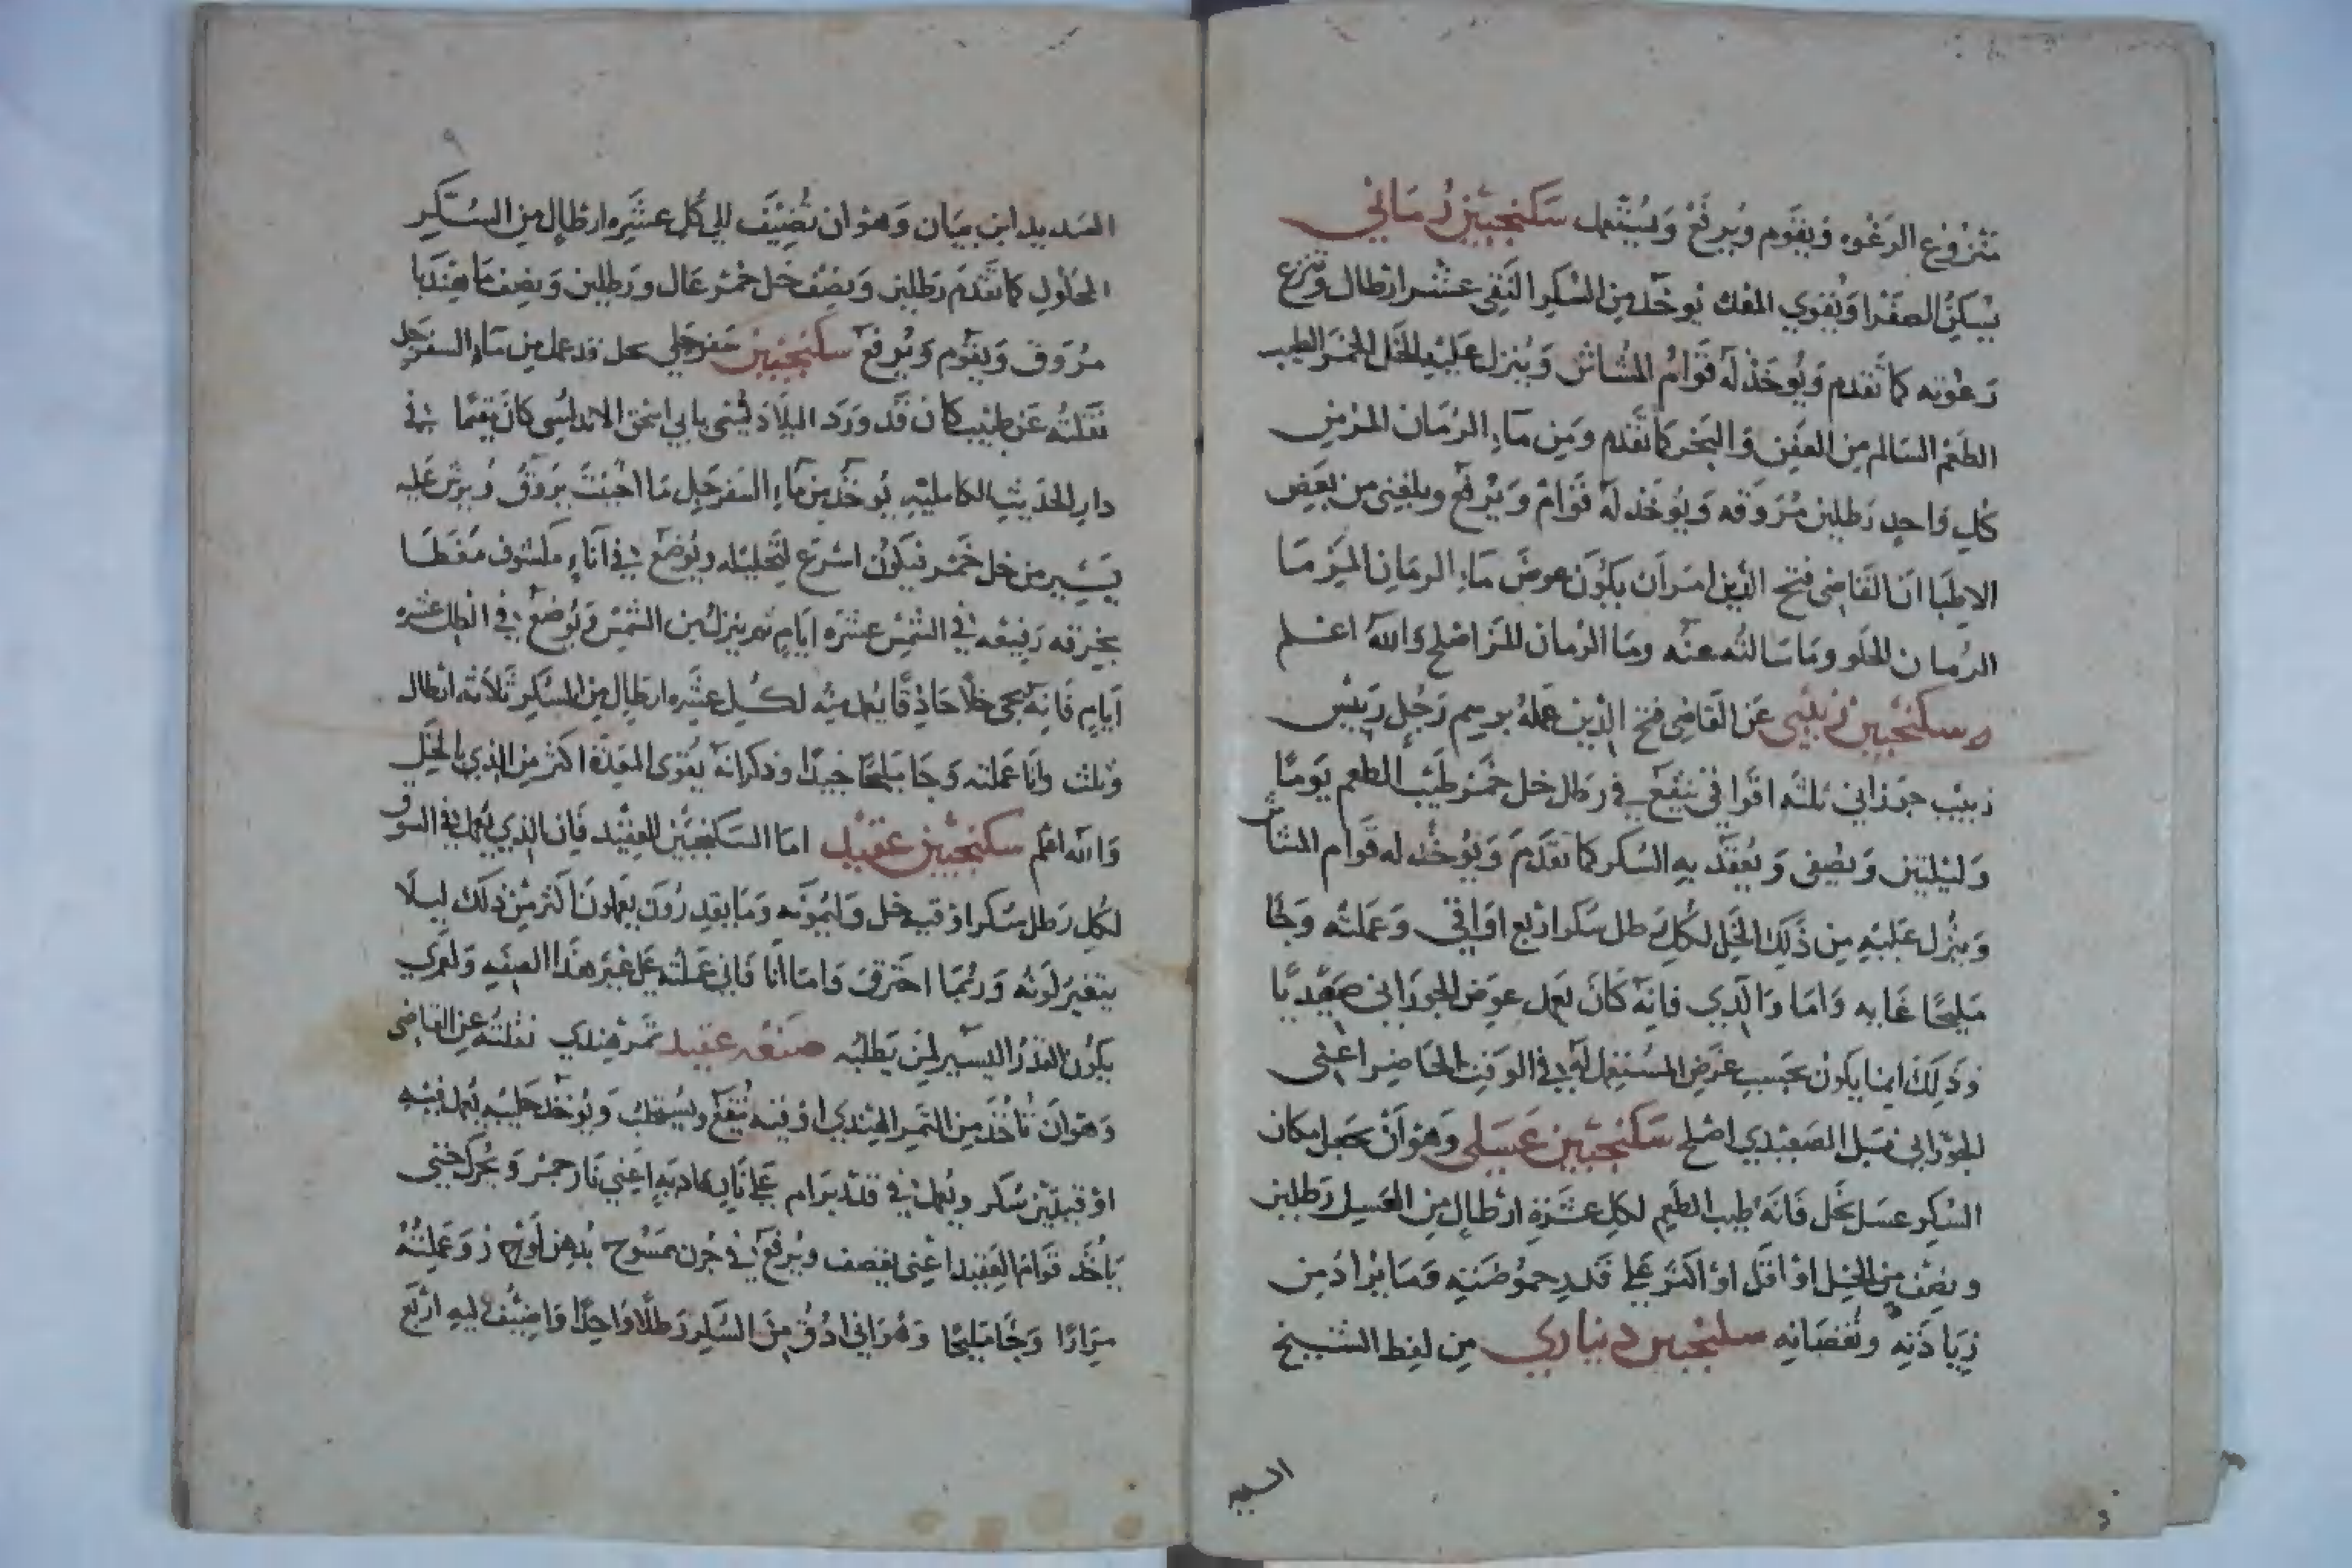 منزوع الرغوه ويقوم ويرفع ويستعمل سكنجبين رماني
يسكن الصفرا ويقوي المعده يوخذ من السكر النقي عشر ارطال وتنزع
رغوته كما تقدم ويوخذ له قوام المشاش وينزل عليه الخل الخمر الطيب
الطعم السالم من العفن والبخر كما تقدم ومن ماء الرمان المز من
كل واحد رطلين مروقه ويوخذ له قوام ويرفع وبلغني من بعض
الاطبا ان القاضي فتح الدين امر ان يكون عوض ماء الرمان المز ما
الرمان الحلو وما سالته عنه وما الرمان المز اصلح والله اعلم
سكنجبين زبيبي عن القاضي فتح الدين عمله برسم رجل رييس
زبيب جوزاني ثلثه اواقي ينقع في رطل خل خمر طيب الطعم يوما
وليلتين ويصفى ويعقد به السكر كما تقدم ويوخذ له قوام المشاش
وينزل عليه من ذلك الخل لكل رطل سكر اربع اواقي وعملته وجا
مليحا غايه واما والدي فانه كان يعمل عوض الجوزاني صعيديا
وذلك ايضا يكون بحسب غرض المستعمل له في الوقت الحاضر اعني
الجوزاني قبل الصعيدي اصلح سكنجبين عسلي وهو ان تجعل مكان
السكر عسل نحل فانه طيب الطعم لكل عشرة ارطال من العسل رطلين
ونصف من الخل او اقل او اكثر على قدر حموضته وما يراد من
زيادته ونقصانه سكنجبين ديناري من لفظ الشيخ
السديد
٩
السديد ابن بيان وهو ان تضيف الى كل عشره ارطال من السكر
المحلول كما تقدم رطلين ونصف خل خمر عال ورطلين ونصف ما هندبا
مروق ويقوم ويرفع سكنجبين سفرجلي بخل قد عمل من ماء السفرجل
نقلته عن طبيب كان قد ورد البلاد يسمى بابي اسحق الاندلسي كان مقيما في
دار الحديث الكامليه يوخذ من ماء السفرجل ما احببت يروق ويرش عليه
يسير من خل خمر فيكون اسرع لتحليله ويوضع في اناء مكشوف مغطا
بخرقه رفيعه في الشمس عشره ايام ثم ينزل من الشمس ويوضع في الظل عشره
ايام فانه يجي خلا حاذقا يعمل منه لكل عشره ارطال من السكر ثلاثه ارطال
وثلث وانا عملته وجا مليحا جيدا وذكر انه يقوى المعدة اكثر من الذي بالخل
والله اعلم سكنجبين عقيد اما السكنجبين العقيد فان الذي يعمل في السوق
لكل رطل سكر اوقيه خل وليمونه وما يقدرون يعملون اكثر من ذلك ليلا
يتغير لونه وربما احترق واما انا فاني عملته على غير هذا الصفه ولعمري
يكون القدر اليسير لمن يطلبه صنعه عقيد تمر هندي نقلته عن القاضي
وهو ان تاخذ من التمر الهندي اوقيه تنقع ويستحلب ويوخذ حليبه يعمل فيه
اوقيتين سكر ويعمل في قدر برام على نار هاديه اعني نار جمر ويحرك حتى
ياخذ قوام العقيد اعني يقصف ويرفع في جرن ممسوح بدهن لوز وعملته
مرارا وجا مليحا وهو اني ادق من السكر رطلا واحدا واضيف اليه اربع